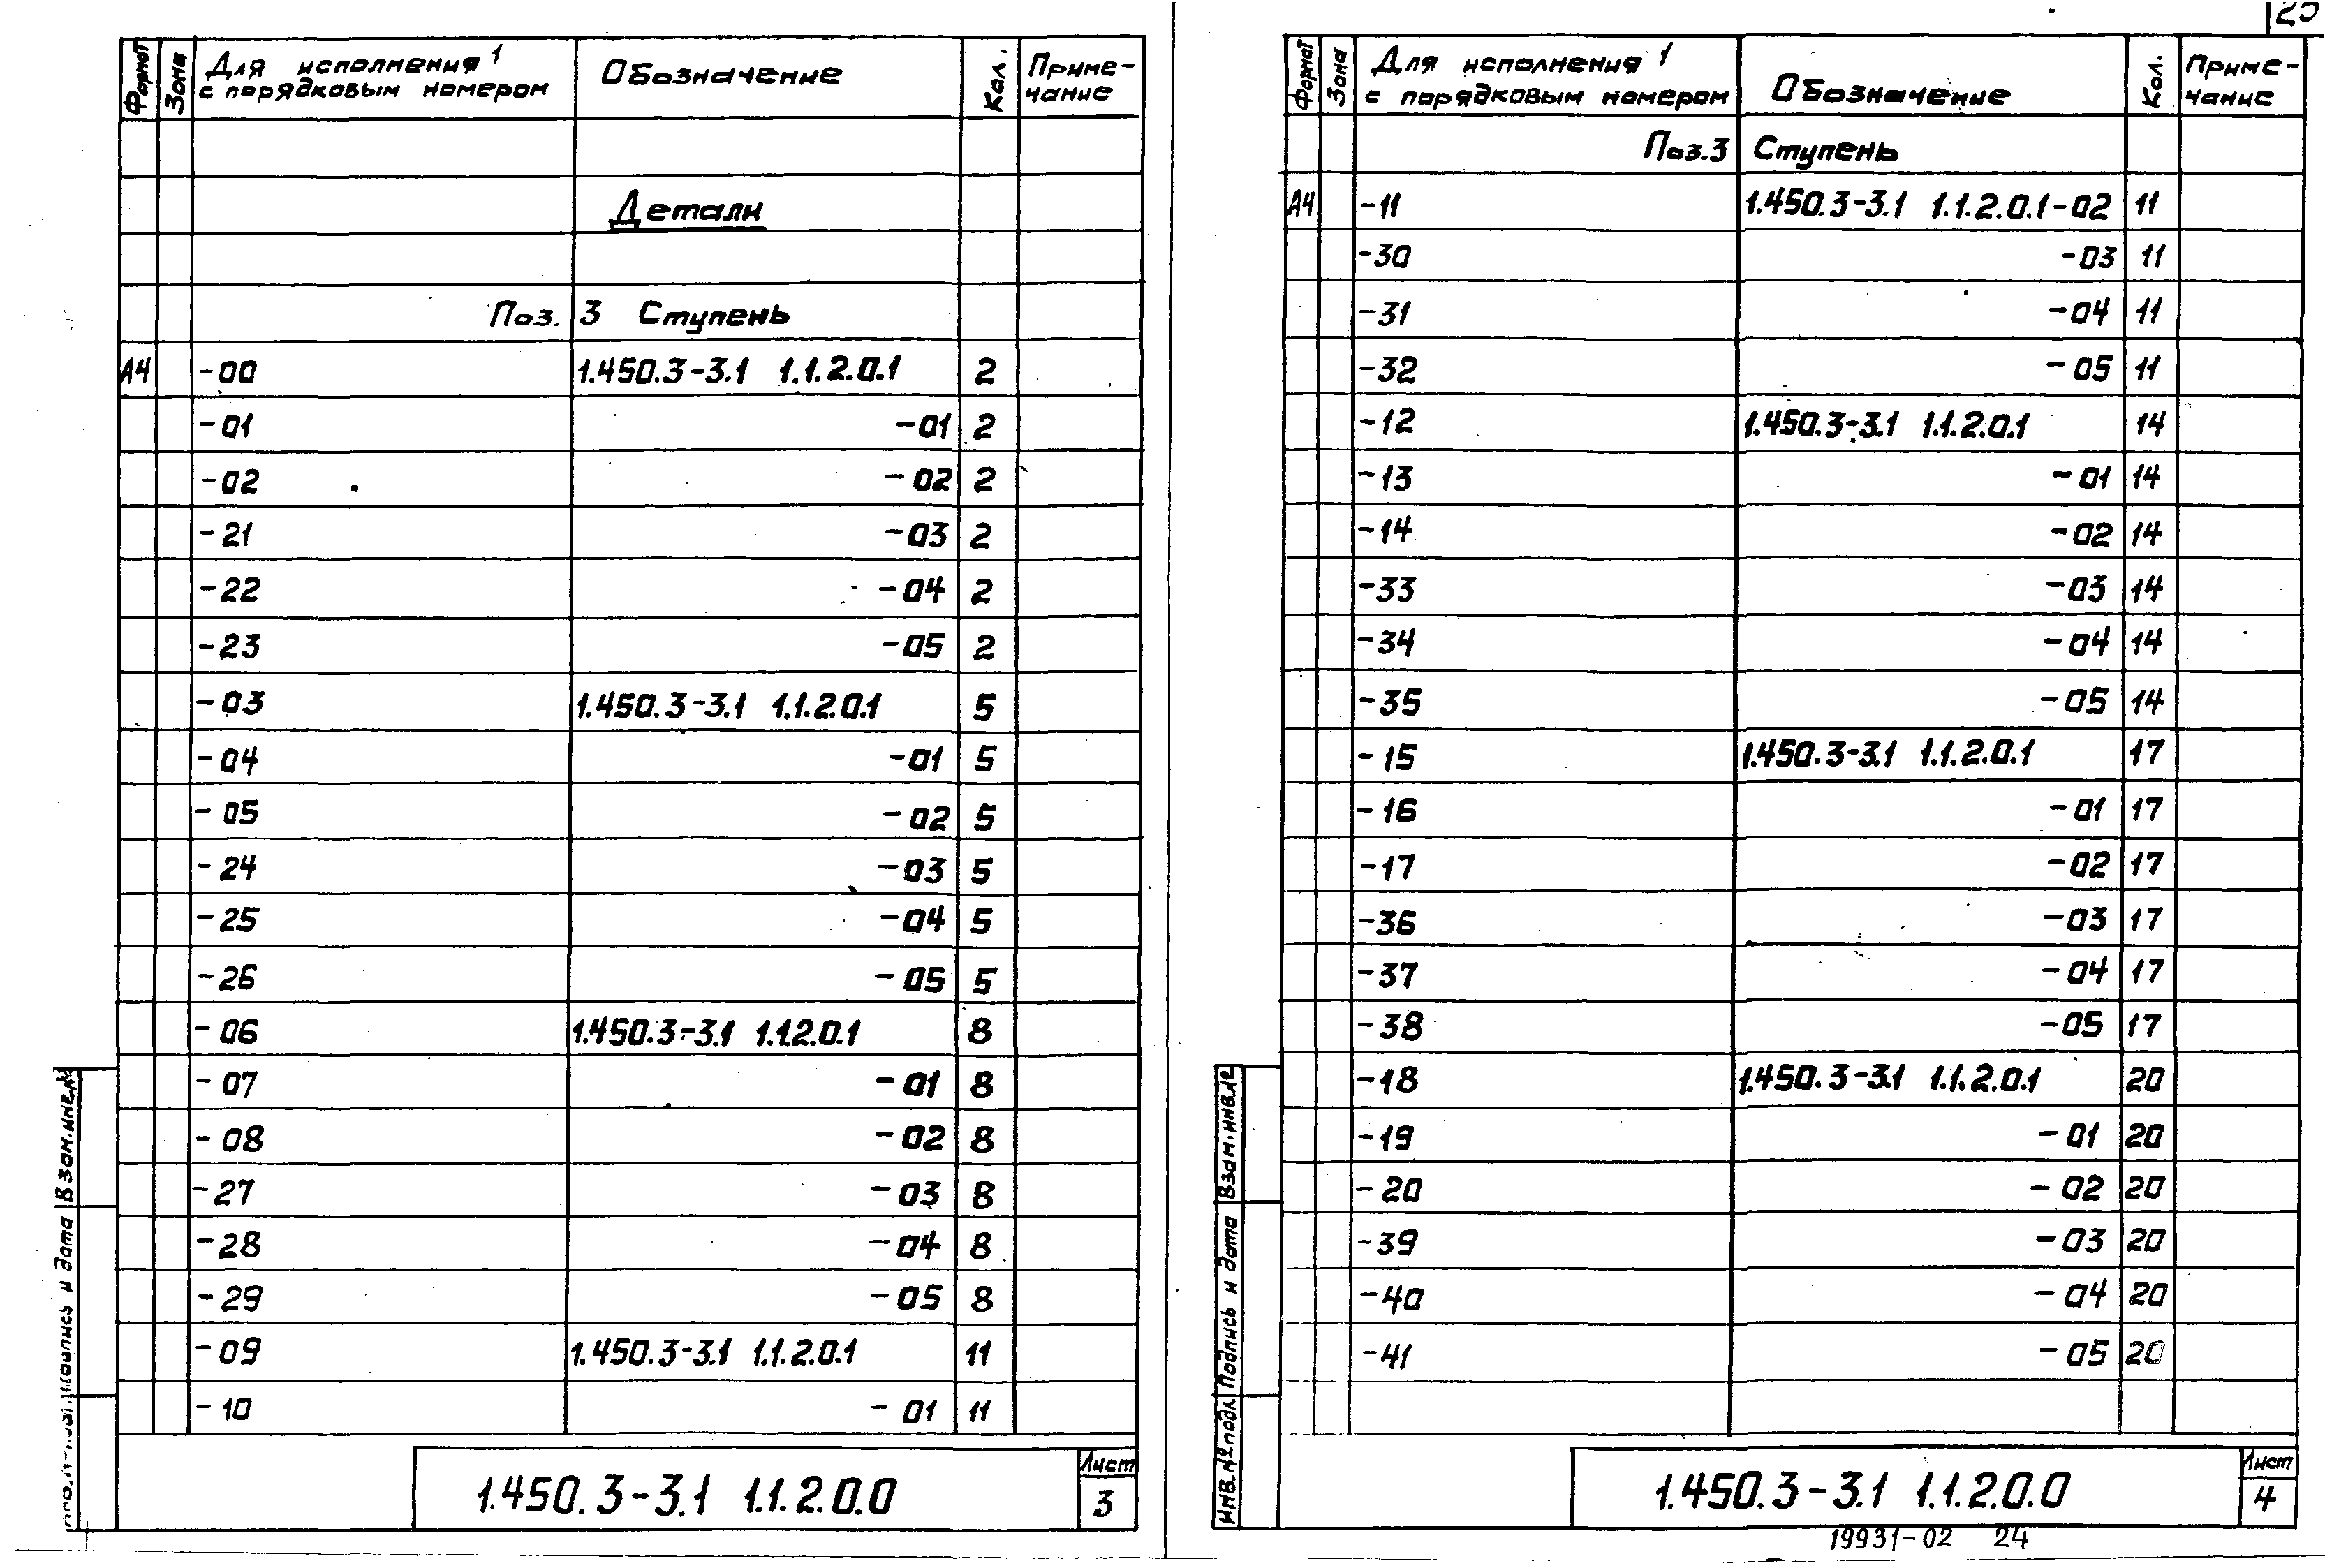 Формат Зона Для исполнения 1 с порядковым номером Обозначение Кол. Приме-чание
Детали
Поз. 3 Ступень
А4 -00 1.450.3-3.1 1.1.2.0.1 2
-01 -01 2
-02 -02 2
-21 -03 2
-22 -04 2
-23 -05 2
-03 1.450.3-3.1 1.1.2.0.1 5
-04 -01 5
-05 -02 5
-24 -03 5
-25 -04 5
-26 -05 5
-06 1.450.3-3.1 1.1.2.0.1 8
-07 -01 8
-08 -02 8
-27 -03 8
-28 -04 8
-29 -05 8
-09 1.450.3-3.1 1.1.2.0.1 11
-10 -01 11
Взам.инв.№
Подпись и дата
1.450.3-3.1 1.1.2.0.0
Лист
3
Формат Зона Для исполнения 1 с порядковым номером Обозначение Кол. Приме-чание
Поз.3 Ступень
А4 -11 1.450.3-3.1 1.1.2.0.1-02 11
-30 -03 11
-31 -04 11
-32 -05 11
-12 1.450.3-3.1 1.1.2.0.1 14
-13 -01 14
-14 -02 14
-33 -03 14
-34 -04 14
-35 -05 14
-15 1.450.3-3.1 1.1.2.0.1 17
-16 -01 17
-17 -02 17
-36 -03 17
-37 -04 17
-38 -05 17
-18 1.450.3-3.1 1.1.2.0.1 20
-19 -01 20
-20 -02 20
-39 -03 20
-40 -04 20
-41 -05 20
Взам.инв.№
Подпись и дата
Инв.№подл.
1.450.3-3.1 1.1.2.0.0
Лист
4
19931-02 24